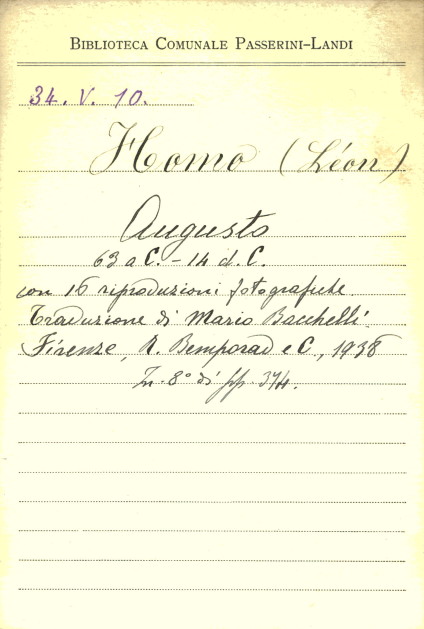 BIBLIOTECA COMUNALE PASSERINI-LANDI
34. V. 10.
Homo (Léon)
Augusto
63 a C. - 14 d. C.
con 16 riproduzioni fotografiche
Traduzione di Mario Bacchelli
Firenze, R. Bemporad e C., 1938
In 8° di pp. 374.